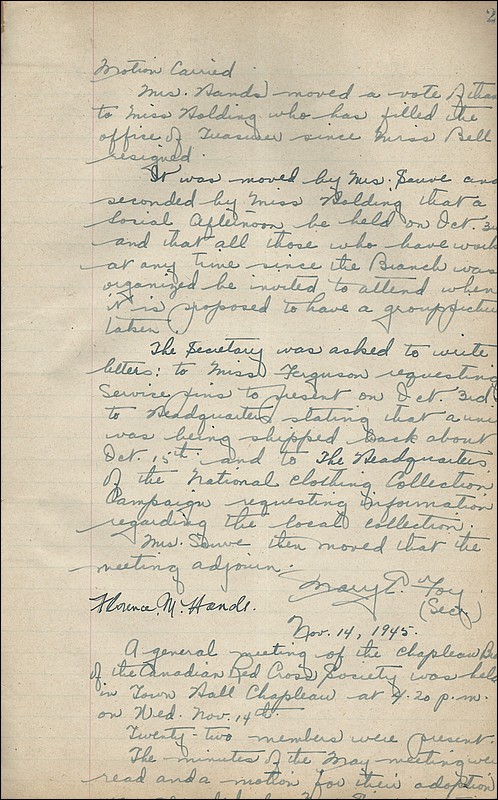 2
Motion Carried
Mrs. Hands moved a vote of than
to Miss Holding who has filled the
office of Treasurer since Miss Bell
resigned.
It was moved by Mrs. Sauve and
seconded by Miss Holding that a
Social Afternoon be held on Oct. 3rd
and that all those who have work
at any time since the Branch was
organized be invited to attend when
it is proposed to have a group pictu
taken.
The Secretary was asked to write
letters: to Miss Ferguson requesting
Service pins to present on Oct. 3rd
to Headquarters stating that a
was being shipped back about
Oct. 15th and to The Headquarters
of the National Clothing Collection
Campaign requesting information
regarding the local collection.
Mrs. Sauve then moved that the
meeting adjourn.
Mary E. Foy
Florence M. Hands.
(Sec.)
Nov. 14, 1945.
A general meeting of the Chapleau Bra
of the Canadian Red Cross Society was held
in Town Hall Chapleau at 4.20 p.m.
on Wed. Nov. 14th.
Twenty-two members were present
The minutes of the May meeting were
read and a motion for their adoption